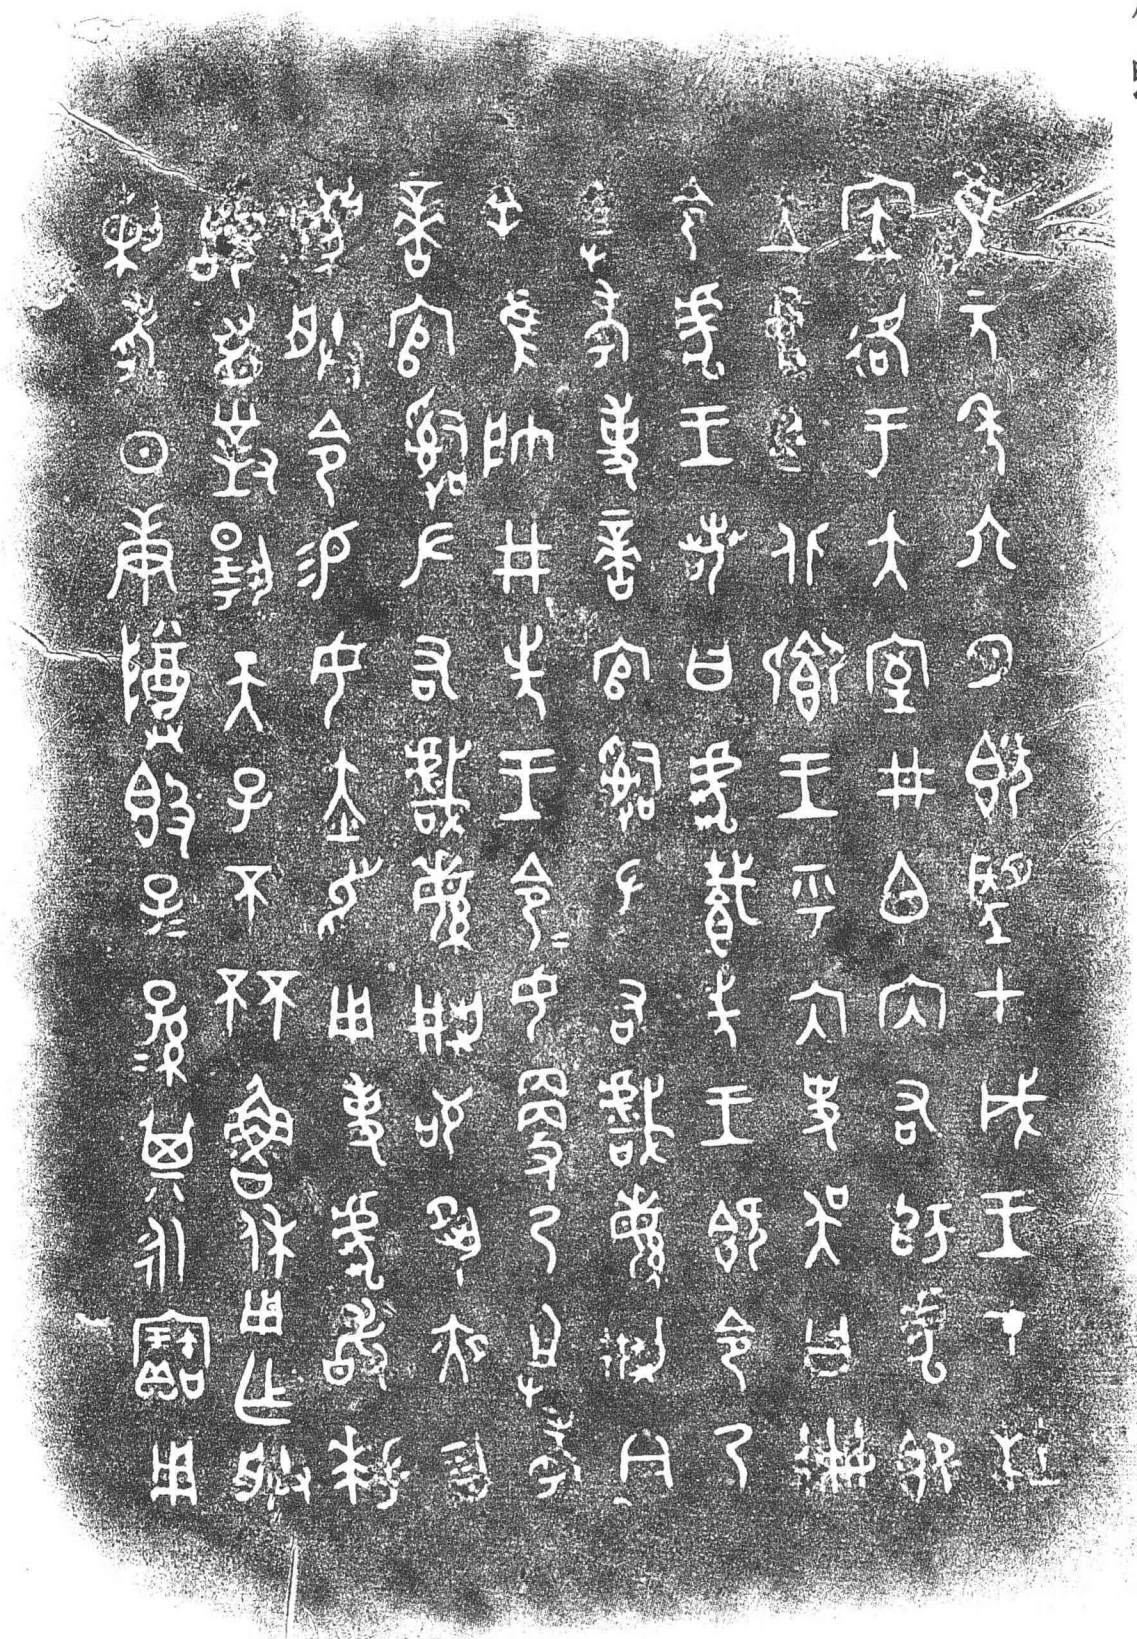 隹元年六月既望甲戌王才杜
㡴格于大室井白內右師虎即
立中廷北鄉王乎內史吳曰冊
令虎王若曰虎䚄先王既令乃
祖考事啻官𤔲左右戲繁荊今
余隹帥井先王令令女更乃祖考
啻官𤔲左右戲繁荊苟夙夜勿
灋朕令易女赤舄用事虎敢拜
𩒨首對揚天子不㔻魯休用乍朕
剌考日庚𬯚𣪘子子孫孫其永寶用